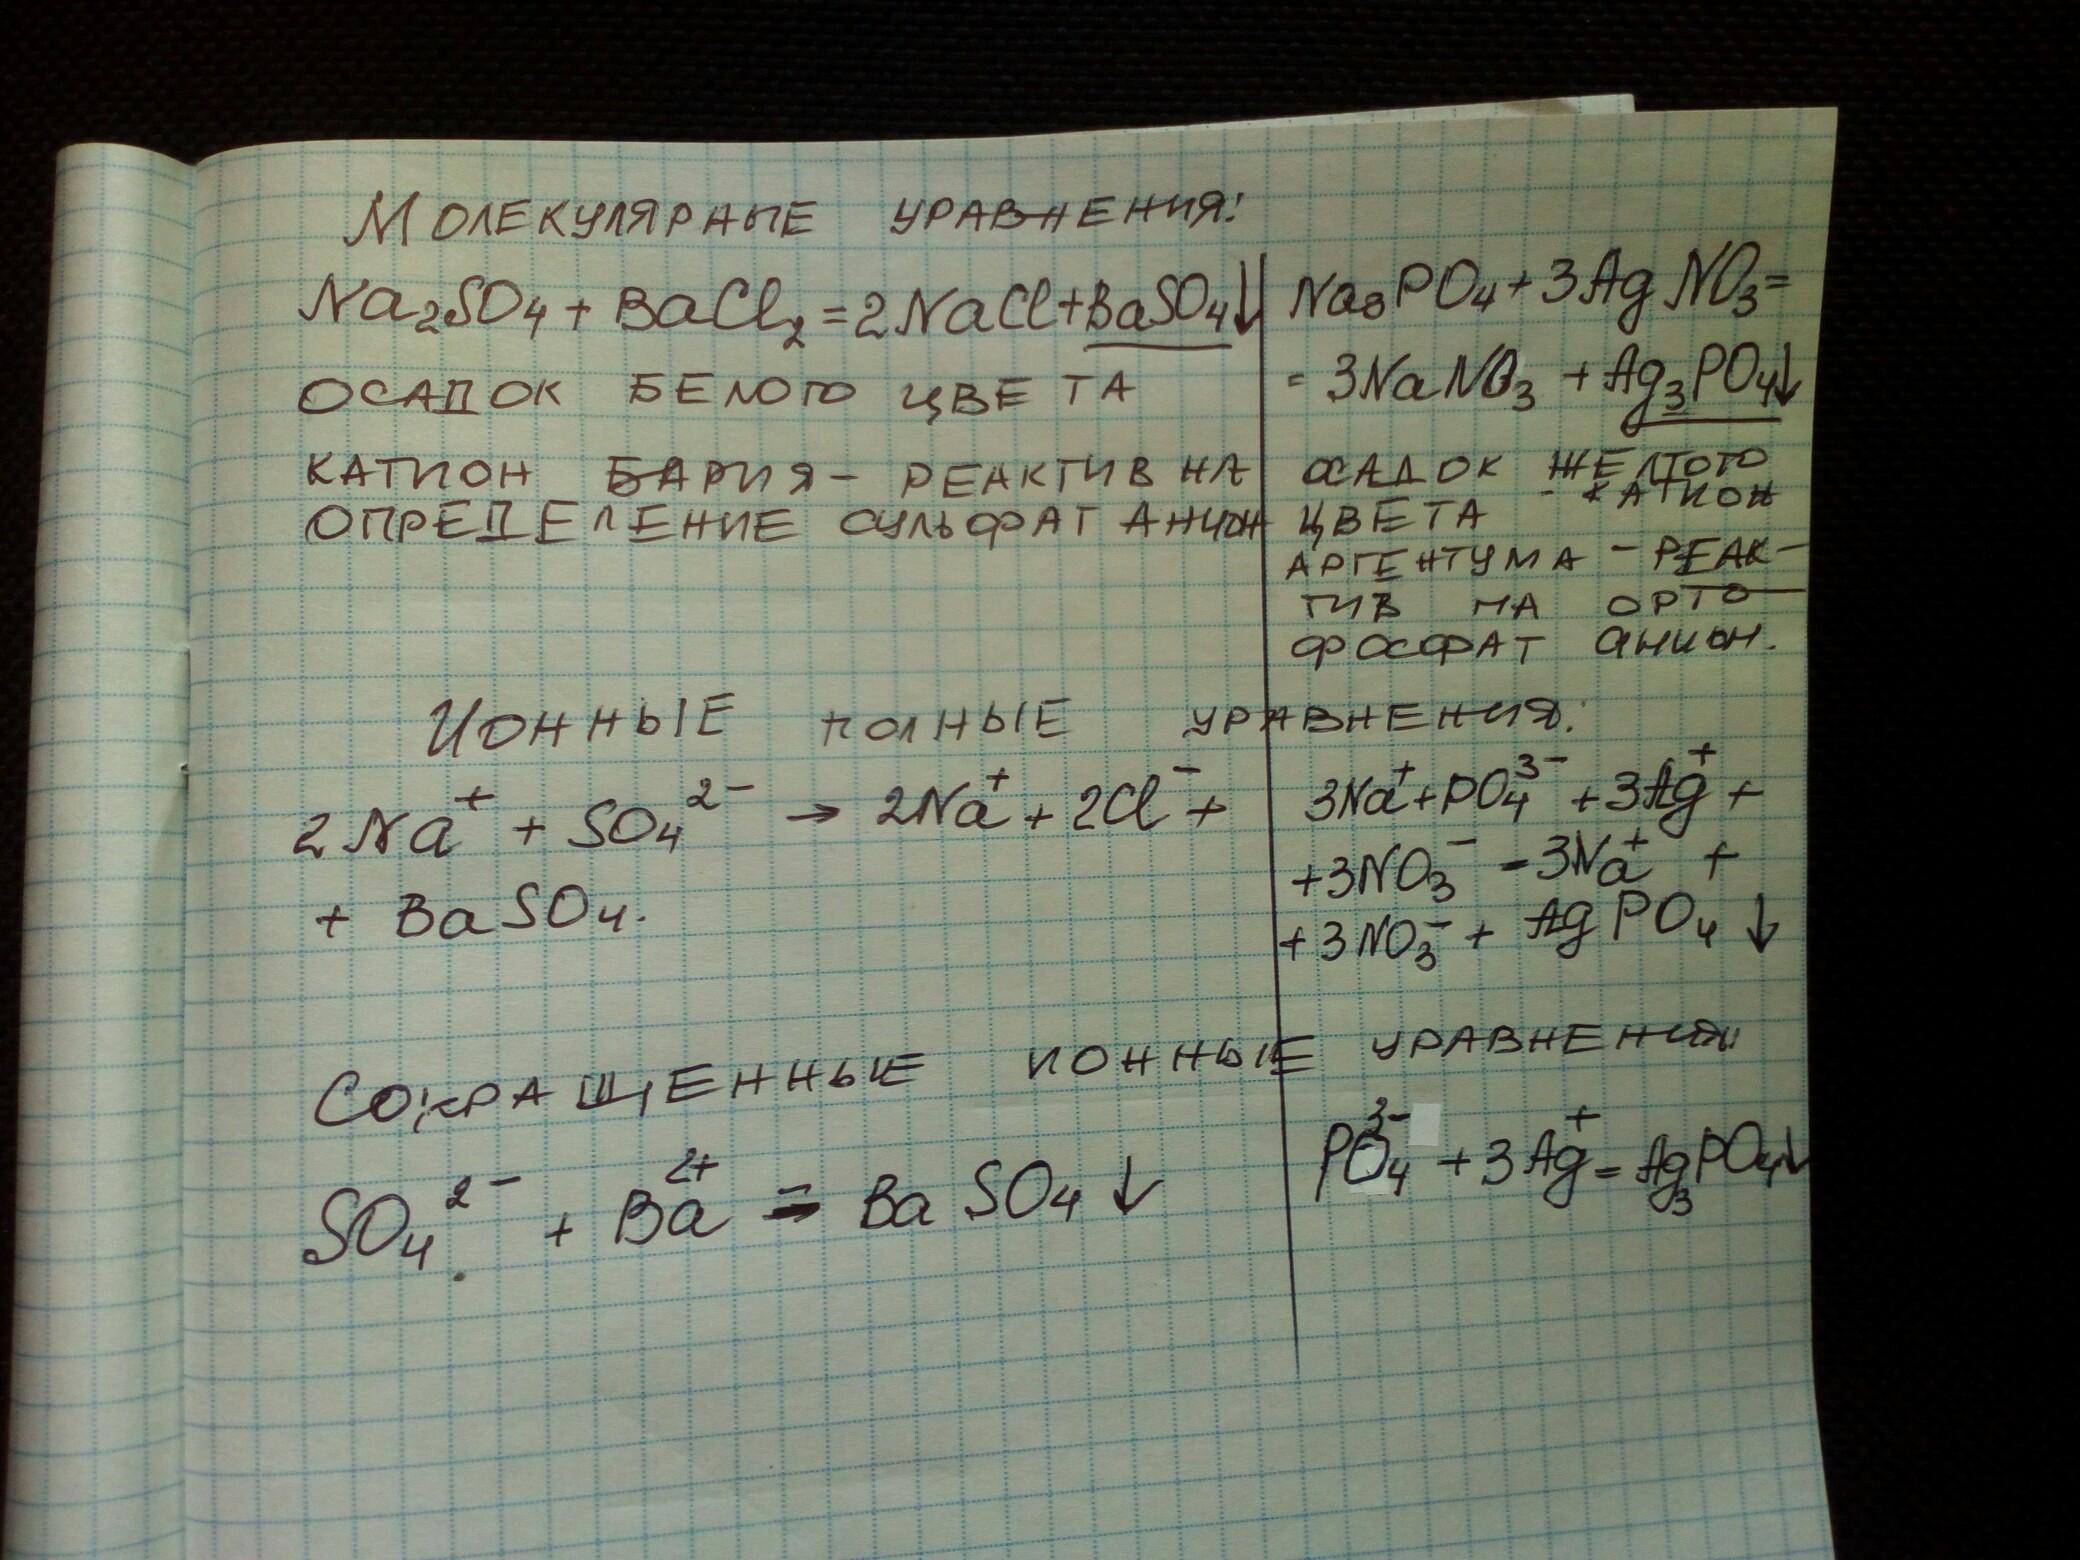 Молекулярные уравнения:
Na₂SO₄ + BaCl₂ = 2NaCl + BaSO₄↓
осадок белого цвета
катион бария - реактив на
определение сульфат анион
Na₃PO₄ + 3AgNO₃ =
= 3NaNO₃ + Ag₃PO₄↓
осадок желтого
цвета - катион
аргентума - реак-
тив на орто-
фосфат анион.
Ионные полные уравнения:
2Na⁺ + SO₄²⁻ → 2Na⁺ + 2Cl⁻ +
+ BaSO₄.
3Na⁺ + PO₄³⁻ + 3Ag⁺ +
+ 3NO₃⁻ = 3Na⁺ +
+ 3NO₃⁻ + AgPO₄↓
Сокращенные ионные уравнения:
SO₄²⁻ + Ba²⁺ = BaSO₄↓
PO₄³⁻ + 3Ag⁺ = Ag₃PO₄↓